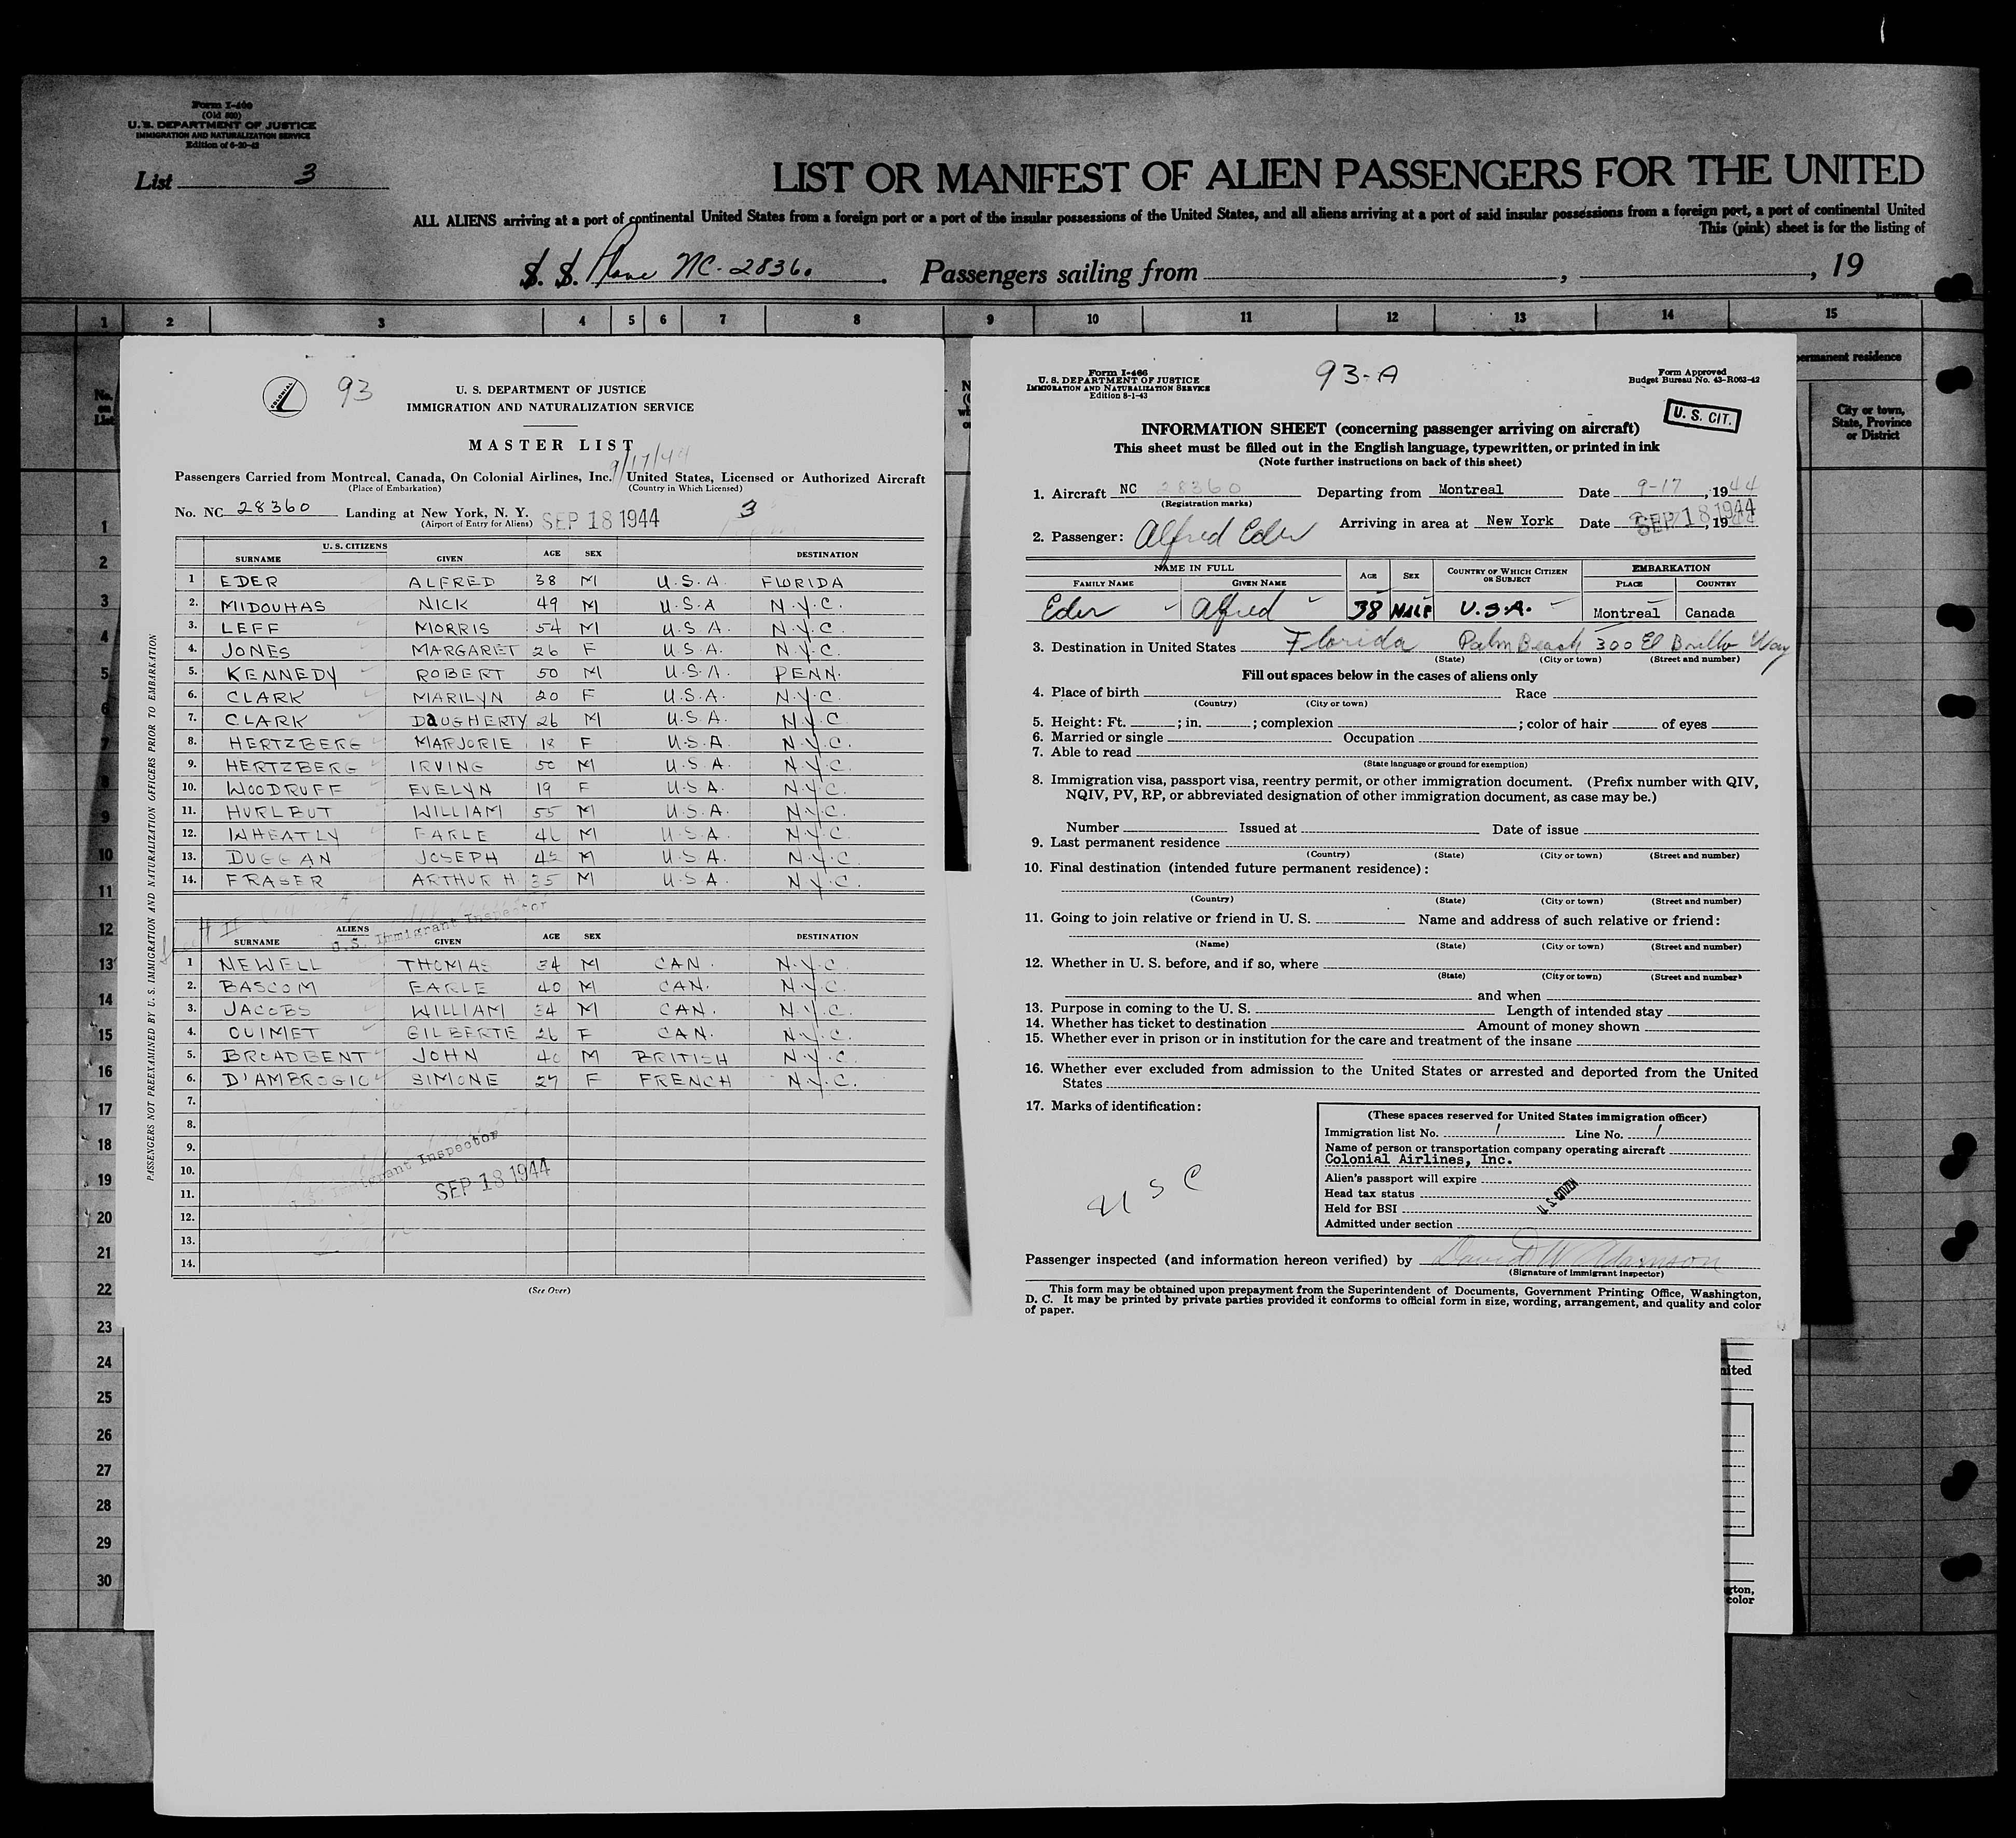 Form I-466
(Old 500)
U. S. DEPARTMENT OF JUSTICE
IMMIGRATION AND NATURALIZATION SERVICE
Edition of 6-20-42
List 3
LIST OR MANIFEST OF ALIEN PASSENGERS FOR THE UNITED
ALL ALIENS arriving at a port of continental United States from a foreign port or a port of the insular possessions of the United States, and all aliens arriving at a port of said insular possessions from a foreign port, a port of continental United
This (pink) sheet is for the listing of
S. S. Plane NC-28360. Passengers sailing from , , 19
1 2 3 4 5 6 7 8 9 10 11 12 13 14 15
No. on List
permanent residence
City or town, State, Province or District
COLONIAL
93
U. S. DEPARTMENT OF JUSTICE
IMMIGRATION AND NATURALIZATION SERVICE
MASTER LIST
9/17/44
Passengers Carried from Montreal, Canada, On Colonial Airlines, Inc. United States, Licensed or Authorized Aircraft
(Place of Embarkation) (Country in Which Licensed)
No. NC 28360 Landing at New York, N. Y. SEP 18 1944 3
(Airport of Entry for Aliens)
U. S. CITIZENS
SURNAME GIVEN AGE SEX DESTINATION
1 EDER ALFRED 38 M U.S.A. FLORIDA
2. MIDOUHAS NICK 49 M U.S.A N.Y.C.
3. LEFF MORRIS 54 M U.S.A. N.Y.C.
4. JONES MARGARET 26 F U.S.A. N.Y.C.
5. KENNEDY ROBERT 50 M U.S.A. PENN.
6. CLARK MARILYN 20 F U.S.A. N.Y.C.
7. CLARK DAUGHERTY 26 M U.S.A. N.Y.C
8. HERTZBERG MARJORIE 18 F U.S.A N.Y.C.
9. HERTZBERG IRVING 50 M U.S.A. N.Y.C.
10. WOODRUFF EVELYN 19 F U.S.A. N.Y.C.
11. HURLBUT WILLIAM 55 M U.S.A. N.Y.C.
12. WHEATLY EARLE 46 M U.S.A. N.Y.C.
13. DUGGAN JOSEPH M U.S.A. N.Y.C.
14. FRASER ARTHUR H. 35 M U.S.A. N.Y.C.
U.S. Immigrant Inspector
# II
ALIENS
SURNAME GIVEN AGE SEX DESTINATION
1 NEWELL THOMAS 34 M CAN. N.Y.C.
2. BASCOM EARLE 40 M CAN. N.Y.C.
3. JACOBS WILLIAM 34 M CAN. N.Y.C.
4. OUIMET GILBERTE 26 F CAN. N.Y.C.
5. BROADBENT JOHN 40 M BRITISH N.Y.C.
6. D'AMBROGIO SIMONE 27 F FRENCH N.Y.C.
7.
8.
9.
10.
11.
12.
13.
14.
U.S. Immigrant Inspector
SEP 18 1944
(See Over)
PASSENGERS NOT PREEXAMINED BY U. S. IMMIGRATION AND NATURALIZATION OFFICERS PRIOR TO EMBARKATION
Form I-466
U. S. DEPARTMENT OF JUSTICE
IMMIGRATION AND NATURALIZATION SERVICE
Edition 8-1-43
93-A
Form Approved
Budget Bureau No. 43-R063-42
U. S. CIT.
INFORMATION SHEET (concerning passenger arriving on aircraft)
This sheet must be filled out in the English language, typewritten, or printed in ink
(Note further instructions on back of this sheet)
1. Aircraft NC 28360 Departing from Montreal Date 9-17, 1944
(Registration marks)
Arriving in area at New York Date SEP 18 1944, 19
2. Passenger: Alfred Eder
NAME IN FULL AGE SEX COUNTRY OF WHICH CITIZEN OR SUBJECT EMBARKATION
FAMILY NAME GIVEN NAME PLACE COUNTRY
Eder Alfred 38 MALE U.S.A. Montreal Canada
3. Destination in United States Florida Palm Beach 300 El Brillo Way
(State) (City or town) (Street and number)
Fill out spaces below in the cases of aliens only
4. Place of birth Race
(Country) (City or town)
5. Height: Ft. ; in. ; complexion ; color of hair of eyes
6. Married or single Occupation
7. Able to read
(State language or ground for exemption)
8. Immigration visa, passport visa, reentry permit, or other immigration document. (Prefix number with QIV,
NQIV, PV, RP, or abbreviated designation of other immigration document, as case may be.)
Number Issued at Date of issue
9. Last permanent residence
(Country) (State) (City or town) (Street and number)
10. Final destination (intended future permanent residence):
(Country) (State) (City or town) (Street and number)
11. Going to join relative or friend in U. S. Name and address of such relative or friend:
(Name) (State) (City or town) (Street and number)
12. Whether in U. S. before, and if so, where
(State) (City or town) (Street and number)
and when
13. Purpose in coming to the U. S. Length of intended stay
14. Whether has ticket to destination Amount of money shown
15. Whether ever in prison or in institution for the care and treatment of the insane
16. Whether ever excluded from admission to the United States or arrested and deported from the United
States
17. Marks of identification:
U S C
(These spaces reserved for United States immigration officer)
Immigration list No. 1 Line No. 1
Name of person or transportation company operating aircraft
Colonial Airlines, Inc.
Alien's passport will expire
Head tax status
Held for BSI
Admitted under section
U. S. CITIZEN
Passenger inspected (and information hereon verified) by David W Adamson
(Signature of immigrant inspector)
This form may be obtained upon prepayment from the Superintendent of Documents, Government Printing Office, Washington,
D. C. It may be printed by private parties provided it conforms to official form in size, wording, arrangement, and quality and color
of paper.
1
2
3
4
5
6
7
8
9
10
11
12
13
14
15
16
17
18
19
20
21
22
23
24
25
26
27
28
29
30
nited
gton,
color